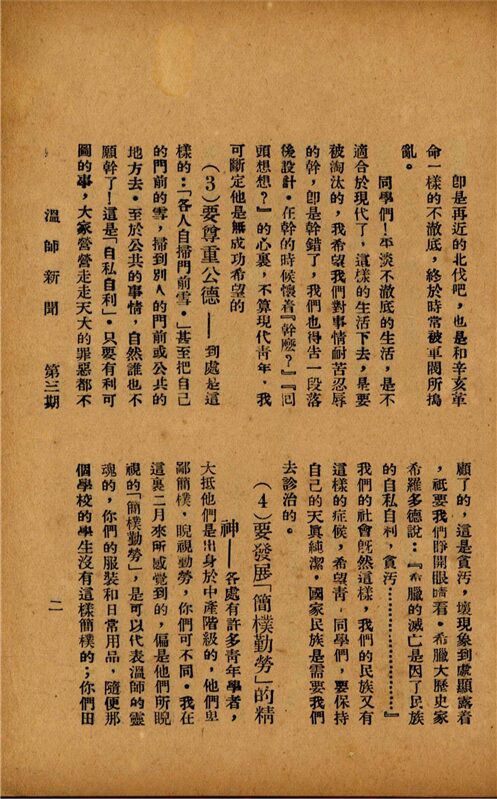 卽是再近的北伐吧，也是和辛亥革
命一樣的不澈底，終於時常被軍閥所搗
亂。
同學們！平淡不澈底的生活，是不
適合於現代了，這樣的生活下去，是要
被淘汰的，我希望我們對事情耐苦忍辱
的幹，卽是幹錯了，我們也得告一段落
後設計。在幹的時候懷着『幹麽？』『回
頭想想？』的心裏，不算現代靑年，我
可斷定他是無成功希望的
（3）要尊重公德——到處是這
樣的：「各人自掃門前雪。」甚至把自己
的門前的雪，掃到別人的門前或公共的
地方去。至於公共的事情，自然誰也不
願幹了！這是「自私自利」。只要有利可
圖的事，大家營營走走天大的罪惡都不
溫師新聞　第三期
顧了的，這是貪汚，壞現象到處顯露着
，祇要我們睜開眼睛看。希臘大歷史家
希羅多德說：『希臘的滅亡是因了民族
的自私自利，貪汚…………………』
我們的社會旣然這樣，我們的民族又有
這樣的症候，希望靑，同學們，要保持
自己的天眞純潔。國家民族是需要我們
去診治的。
（4）要發展「簡樸勤勞」的精
神——各處有許多靑年學者，
大抵他們是出身於中產階級的，他們卑
鄙簡樸，睨視勤勞，你們可不同。我在
這裏二月來所感覺到的，偏是他們所睨
視的「簡樸勤勞」，是可以代表溫師的靈
魂的，你們的服裝和日常用品，隨便那
個學校的學生沒有這樣簡樸的；你們田
二